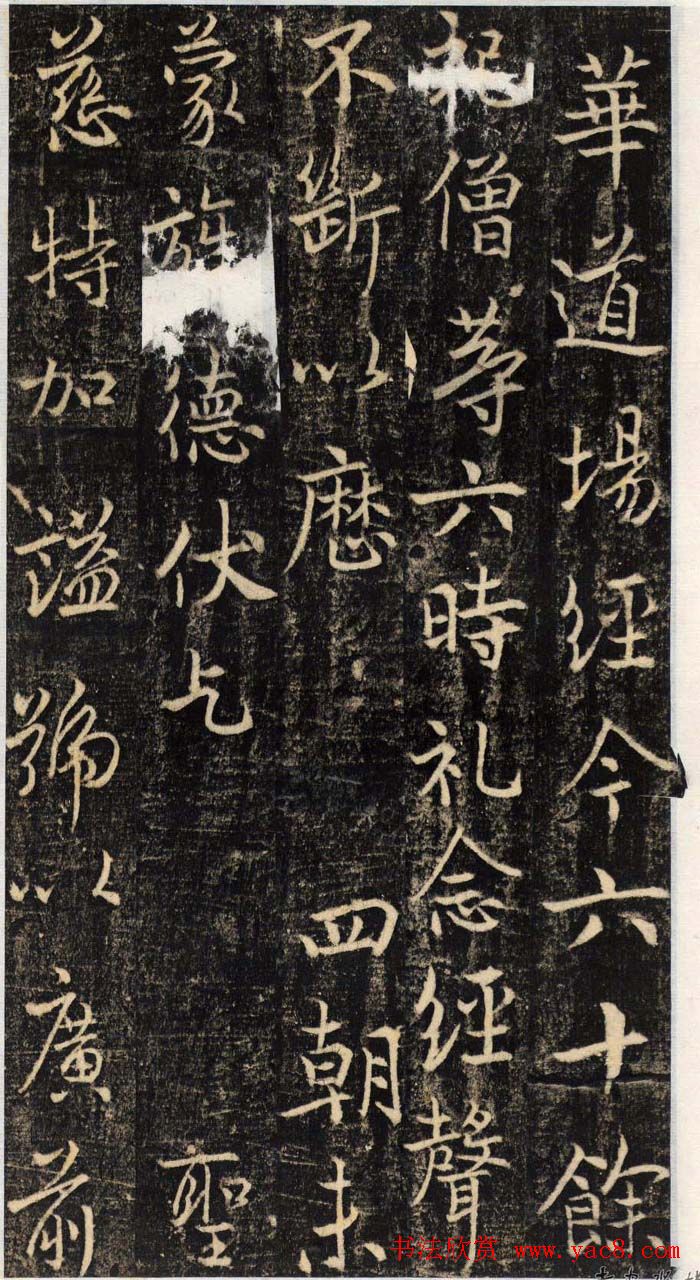 華道場經今六十餘
祀僧等六時礼念經聲
不斷以歷四朝未
蒙旌德伏乞聖
慈特加謚號以廣前
书法欣赏 www.yac8.com